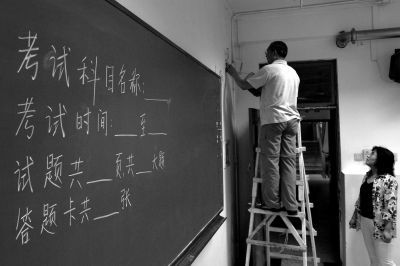 考试科目名称:____
考试时间:___至___
试题共___页,共___大题
答题卡共___张